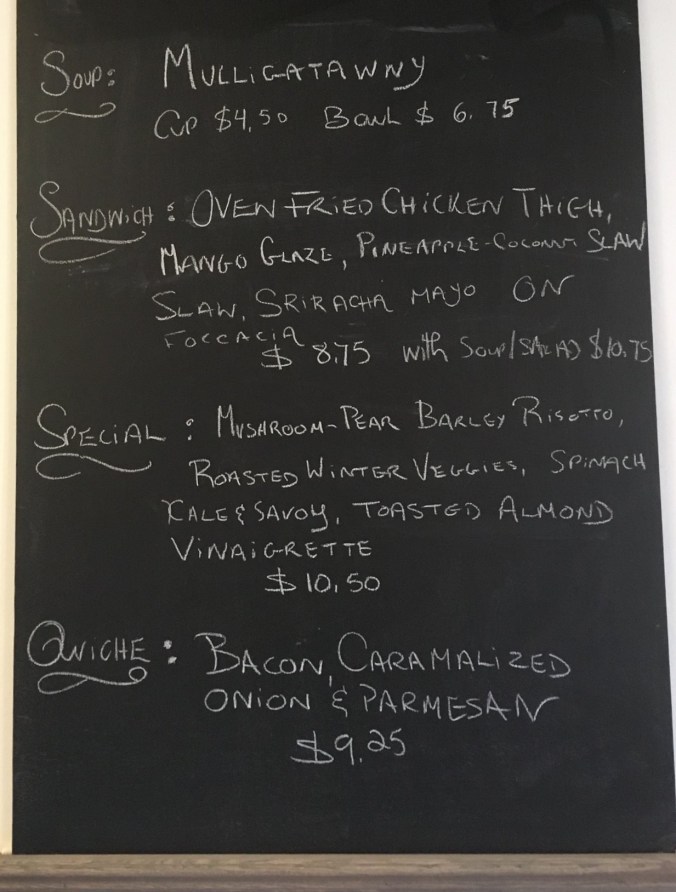 Soup: Mulligatawny
Cup $4.50 Bowl $6.75
Sandwich: Oven Fried Chicken Thigh,
Mango Glaze, Pineapple-Coconut Slaw
Slaw, Sriracha Mayo on
Foccacia
$8.75 with Soup/Salad $10.75
Special: Mushroom-Pear Barley Risotto,
Roasted Winter Veggies, Spinach
Kale & Savoy, Toasted Almond
Vinaigrette
$10.50
Quiche: Bacon, Caramalized
Onion & Parmesan
$9.25